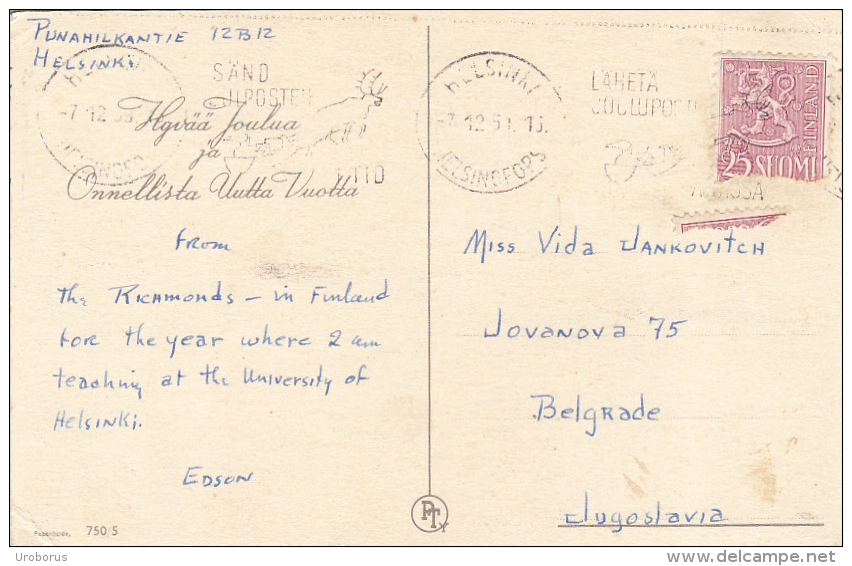 PUNAHILKANTIE 12B12
HELSINKI
SÄND
JULPOSTEN
Hyvää Joulua
ja
Onnellista Uutta Vuotta
From
the RICHMONDS – in Finland
for the year where I am
teaching at the University of
Helsinki.
EDSON
750/5
PTY
HELSINKI
-7.12.5
HELSINGFORS
LÄHETÄ
JOULUPOSTI
25 SUOMI
FINLAND
Miss Vida JANKOVITCH
Jovanova 75
Belgrade
Jugoslavia
Uroborus
www.delcampe.net